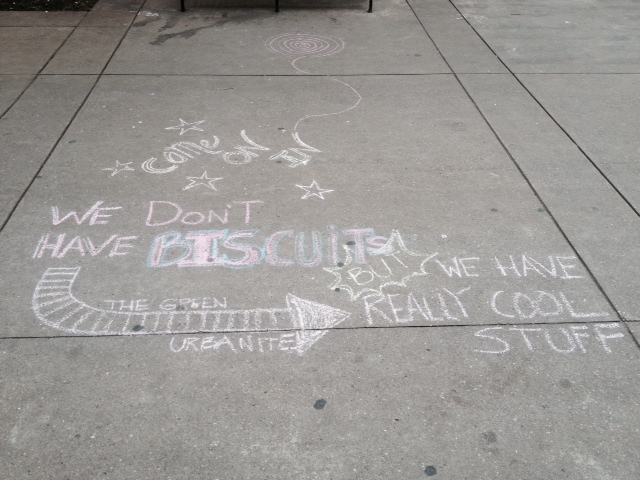 Come on in
WE DON'T
HAVE BISCUITS!
BUT WE HAVE
REALLY COOL
STUFF
THE GREEN
URBANITE!